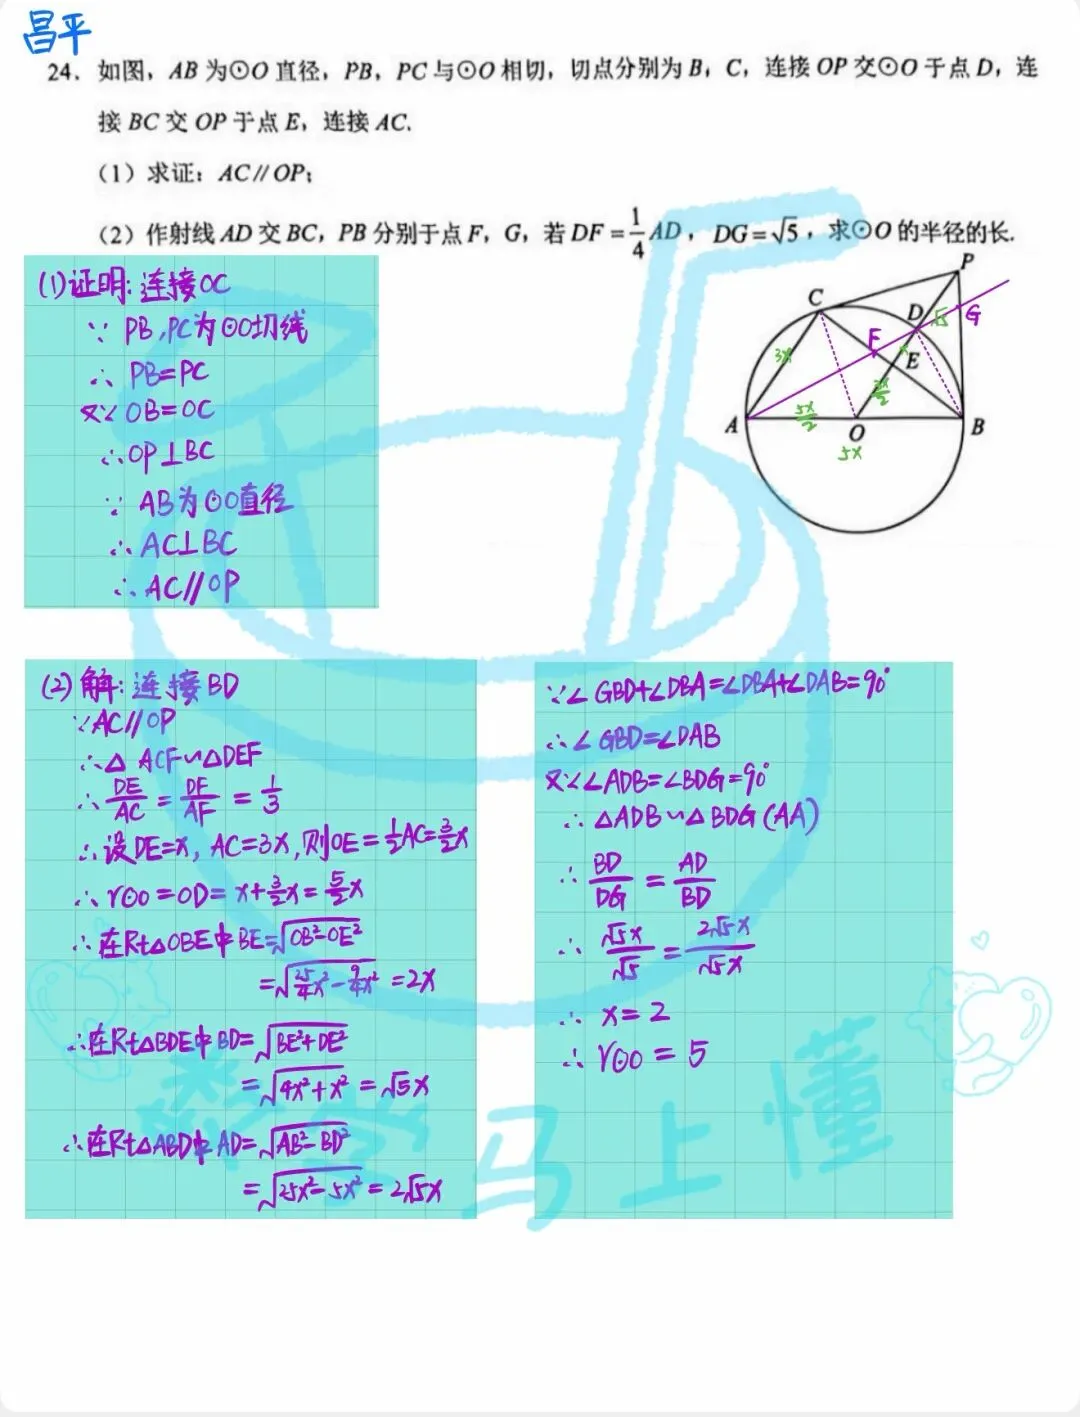 昌平
24. 如图，AB 为⊙O 直径，PB，PC 与⊙O 相切，切点分别为 B，C，连接 OP 交⊙O 于点 D，连
接 BC 交 OP 于点 E，连接 AC.
（1）求证：AC∥OP；
（2）作射线 AD 交 BC，PB 分别于点 F，G，若 DF=1/4 AD，DG=√5，求⊙O 的半径的长.
P
C
D
√5
G
F
3x
x
E
3x/2
A
5x/2
O
B
5x
(1)证明: 连接OC
∵ PB,PC为⊙O切线
∴ PB=PC
又∵ OB=OC
∴OP⊥BC
∵ AB为⊙O直径
∴AC⊥BC
∴AC∥OP
(2)解: 连接BD
∵AC∥OP
∴△ACF∽△DEF
∴DE/AC=DF/AF=1/3
∴设DE=x, AC=3x,则OE=1/2AC=3/2x
∴r⊙o=OD=x+3/2x=5/2x
∴在Rt△OBE中BE=√(OB²-OE²)
=√(25/4x²-9/4x²)=2x
∴在Rt△BDE中BD=√(BE²+DE²)
=√(4x²+x²)=√5x
∴在Rt△ABD中AD=√(AB²-BD²)
=√(25x²-5x²)=2√5x
∵∠GBD+∠DBA=∠DBA+∠DAB=90°
∴∠GBD=∠DAB
又∵∠ADB=∠BDG=90°
∴△ADB∽△BDG(AA)
∴BD/DG=AD/BD
∴√5x/√5=2√5x/√5x
∴x=2
∴r⊙o=5
数学马上懂